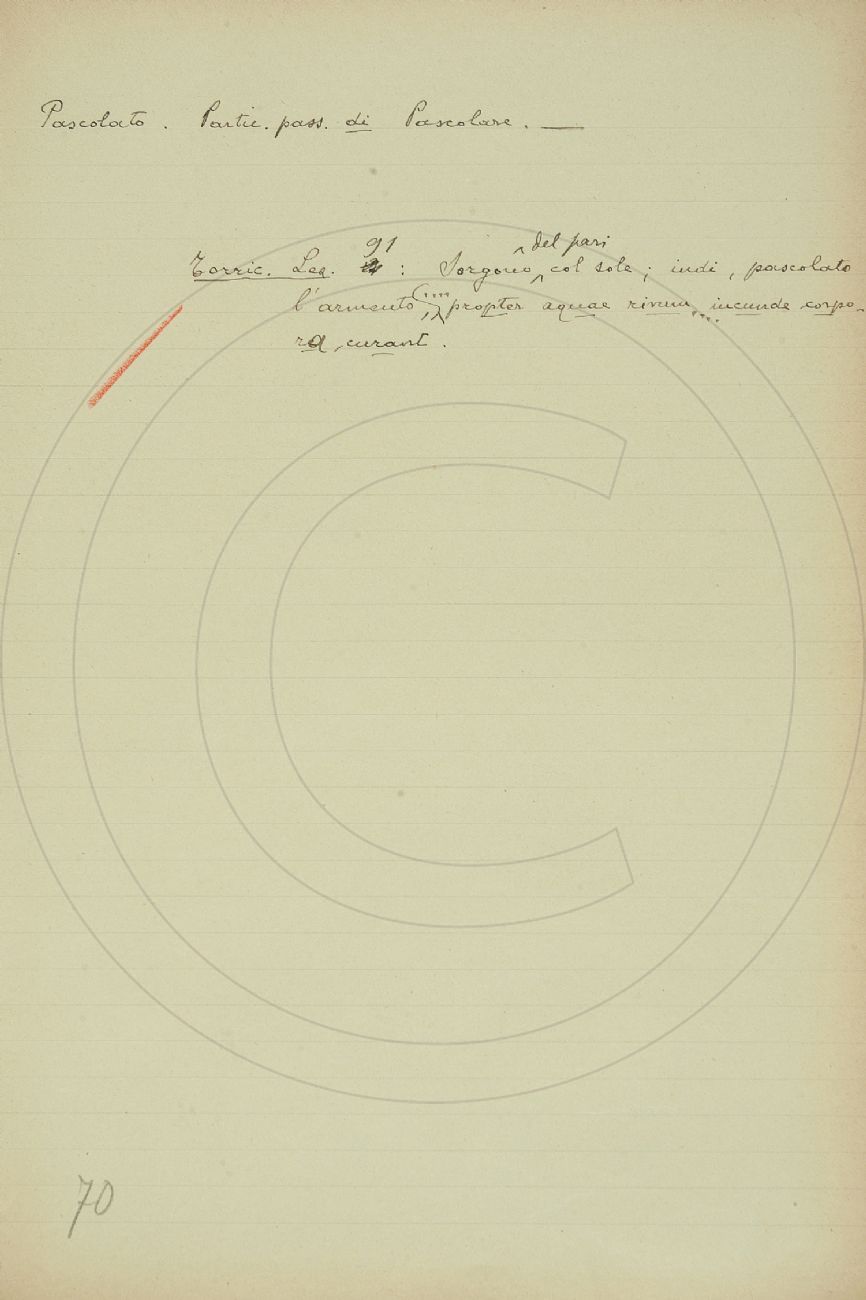 Pascolato. Partic. pass. di Pascolare. —
Torric. Lez. 91 : Sorgono del pari col sole; indi, pascolato
l'armento (....), propter aquae rivum, iucunde corpo-
ra curant.
70